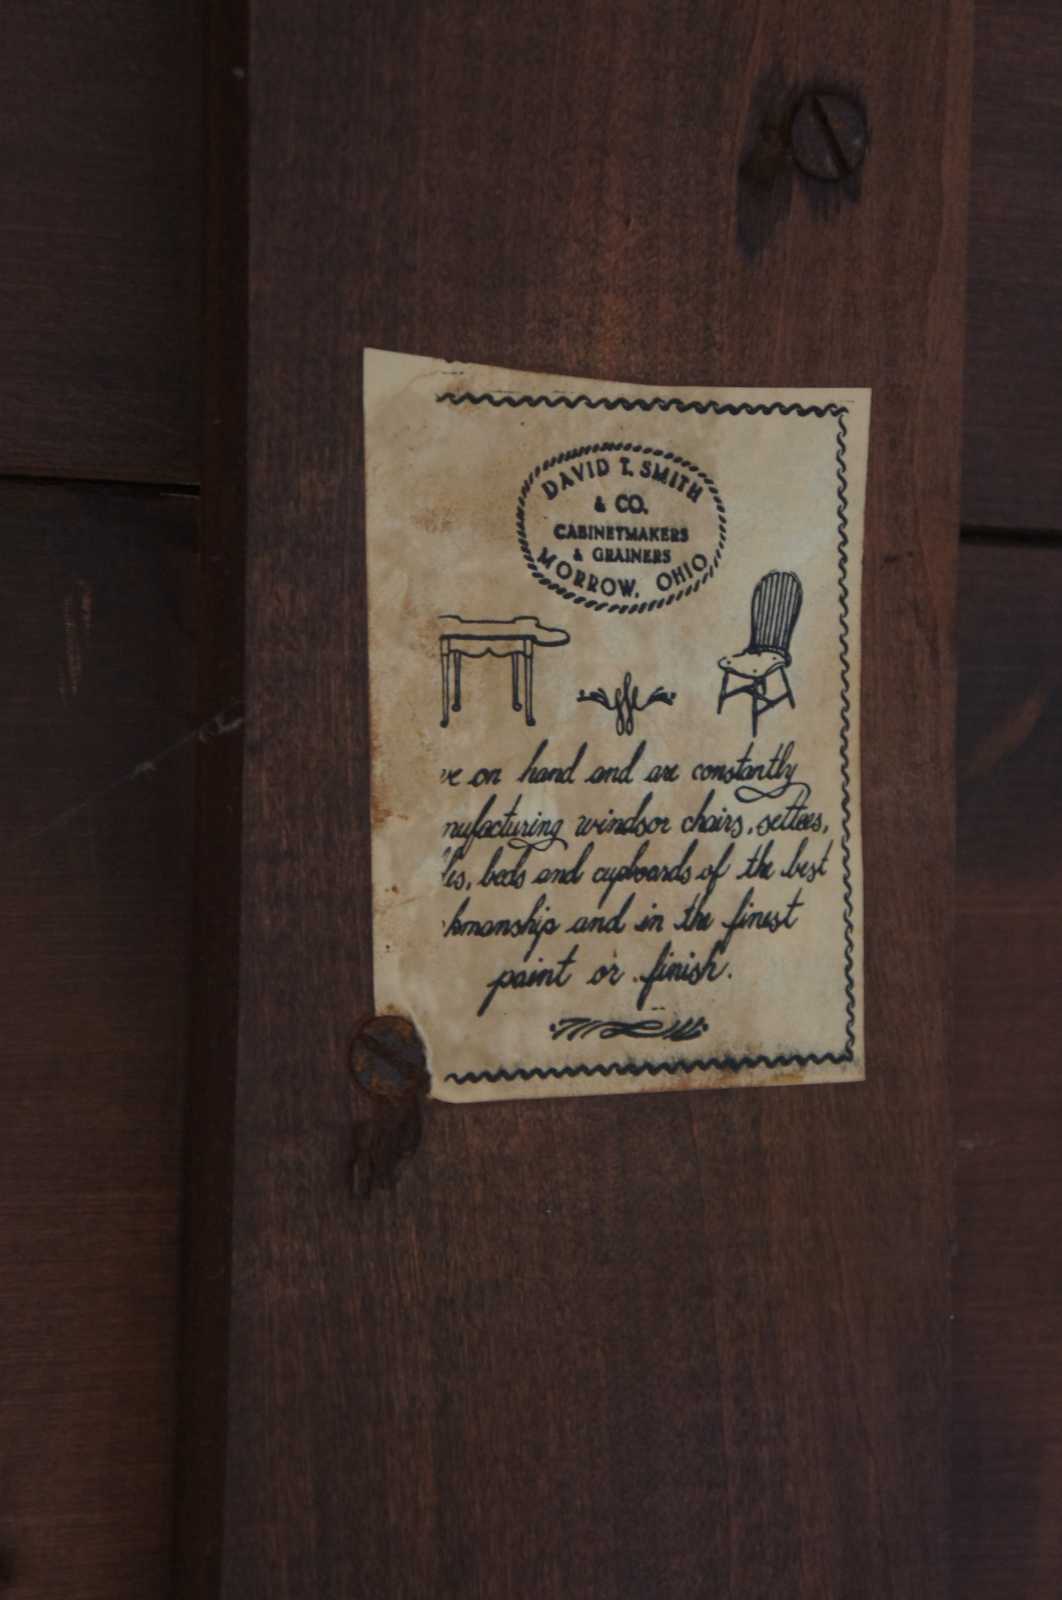 DAVID T. SMITH
& CO.
CABINETMAKERS
& GRAINERS
MORROW, OHIO
ve on hand and are constantly
nufacturing windsor chairs, settees,
les, beds and cupboards of the best
kmanship and in the finest
paint or finish.